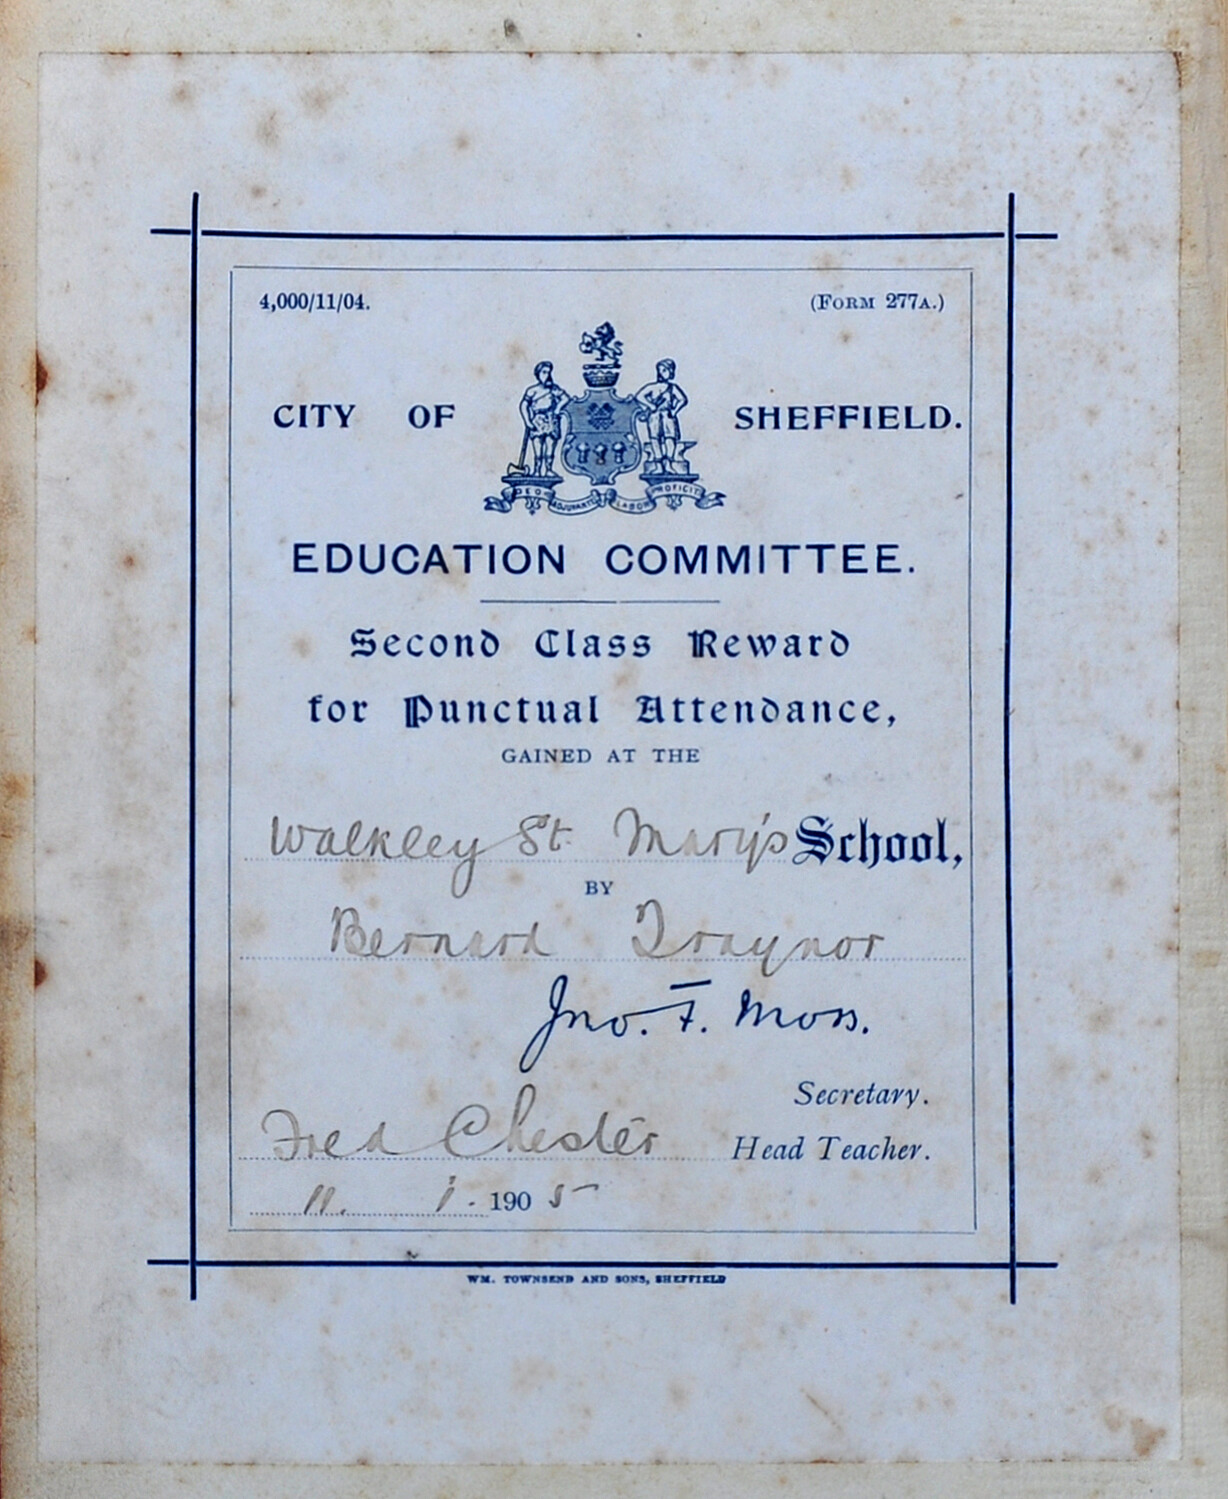 4,000/11/04. (FORM 277A.)
CITY OF SHEFFIELD.
DEO ADJUVANTE LABOR PROFICIT
EDUCATION COMMITTEE.
Second Class Reward
for Punctual Attendance,
GAINED AT THE
Walkley St. Mary's School,
BY
Bernard Traynor
Jno. F. Moss.
Secretary.
Fred Chester Head Teacher.
11. 1. 1905
WM. TOWNSEND AND SONS, SHEFFIELD